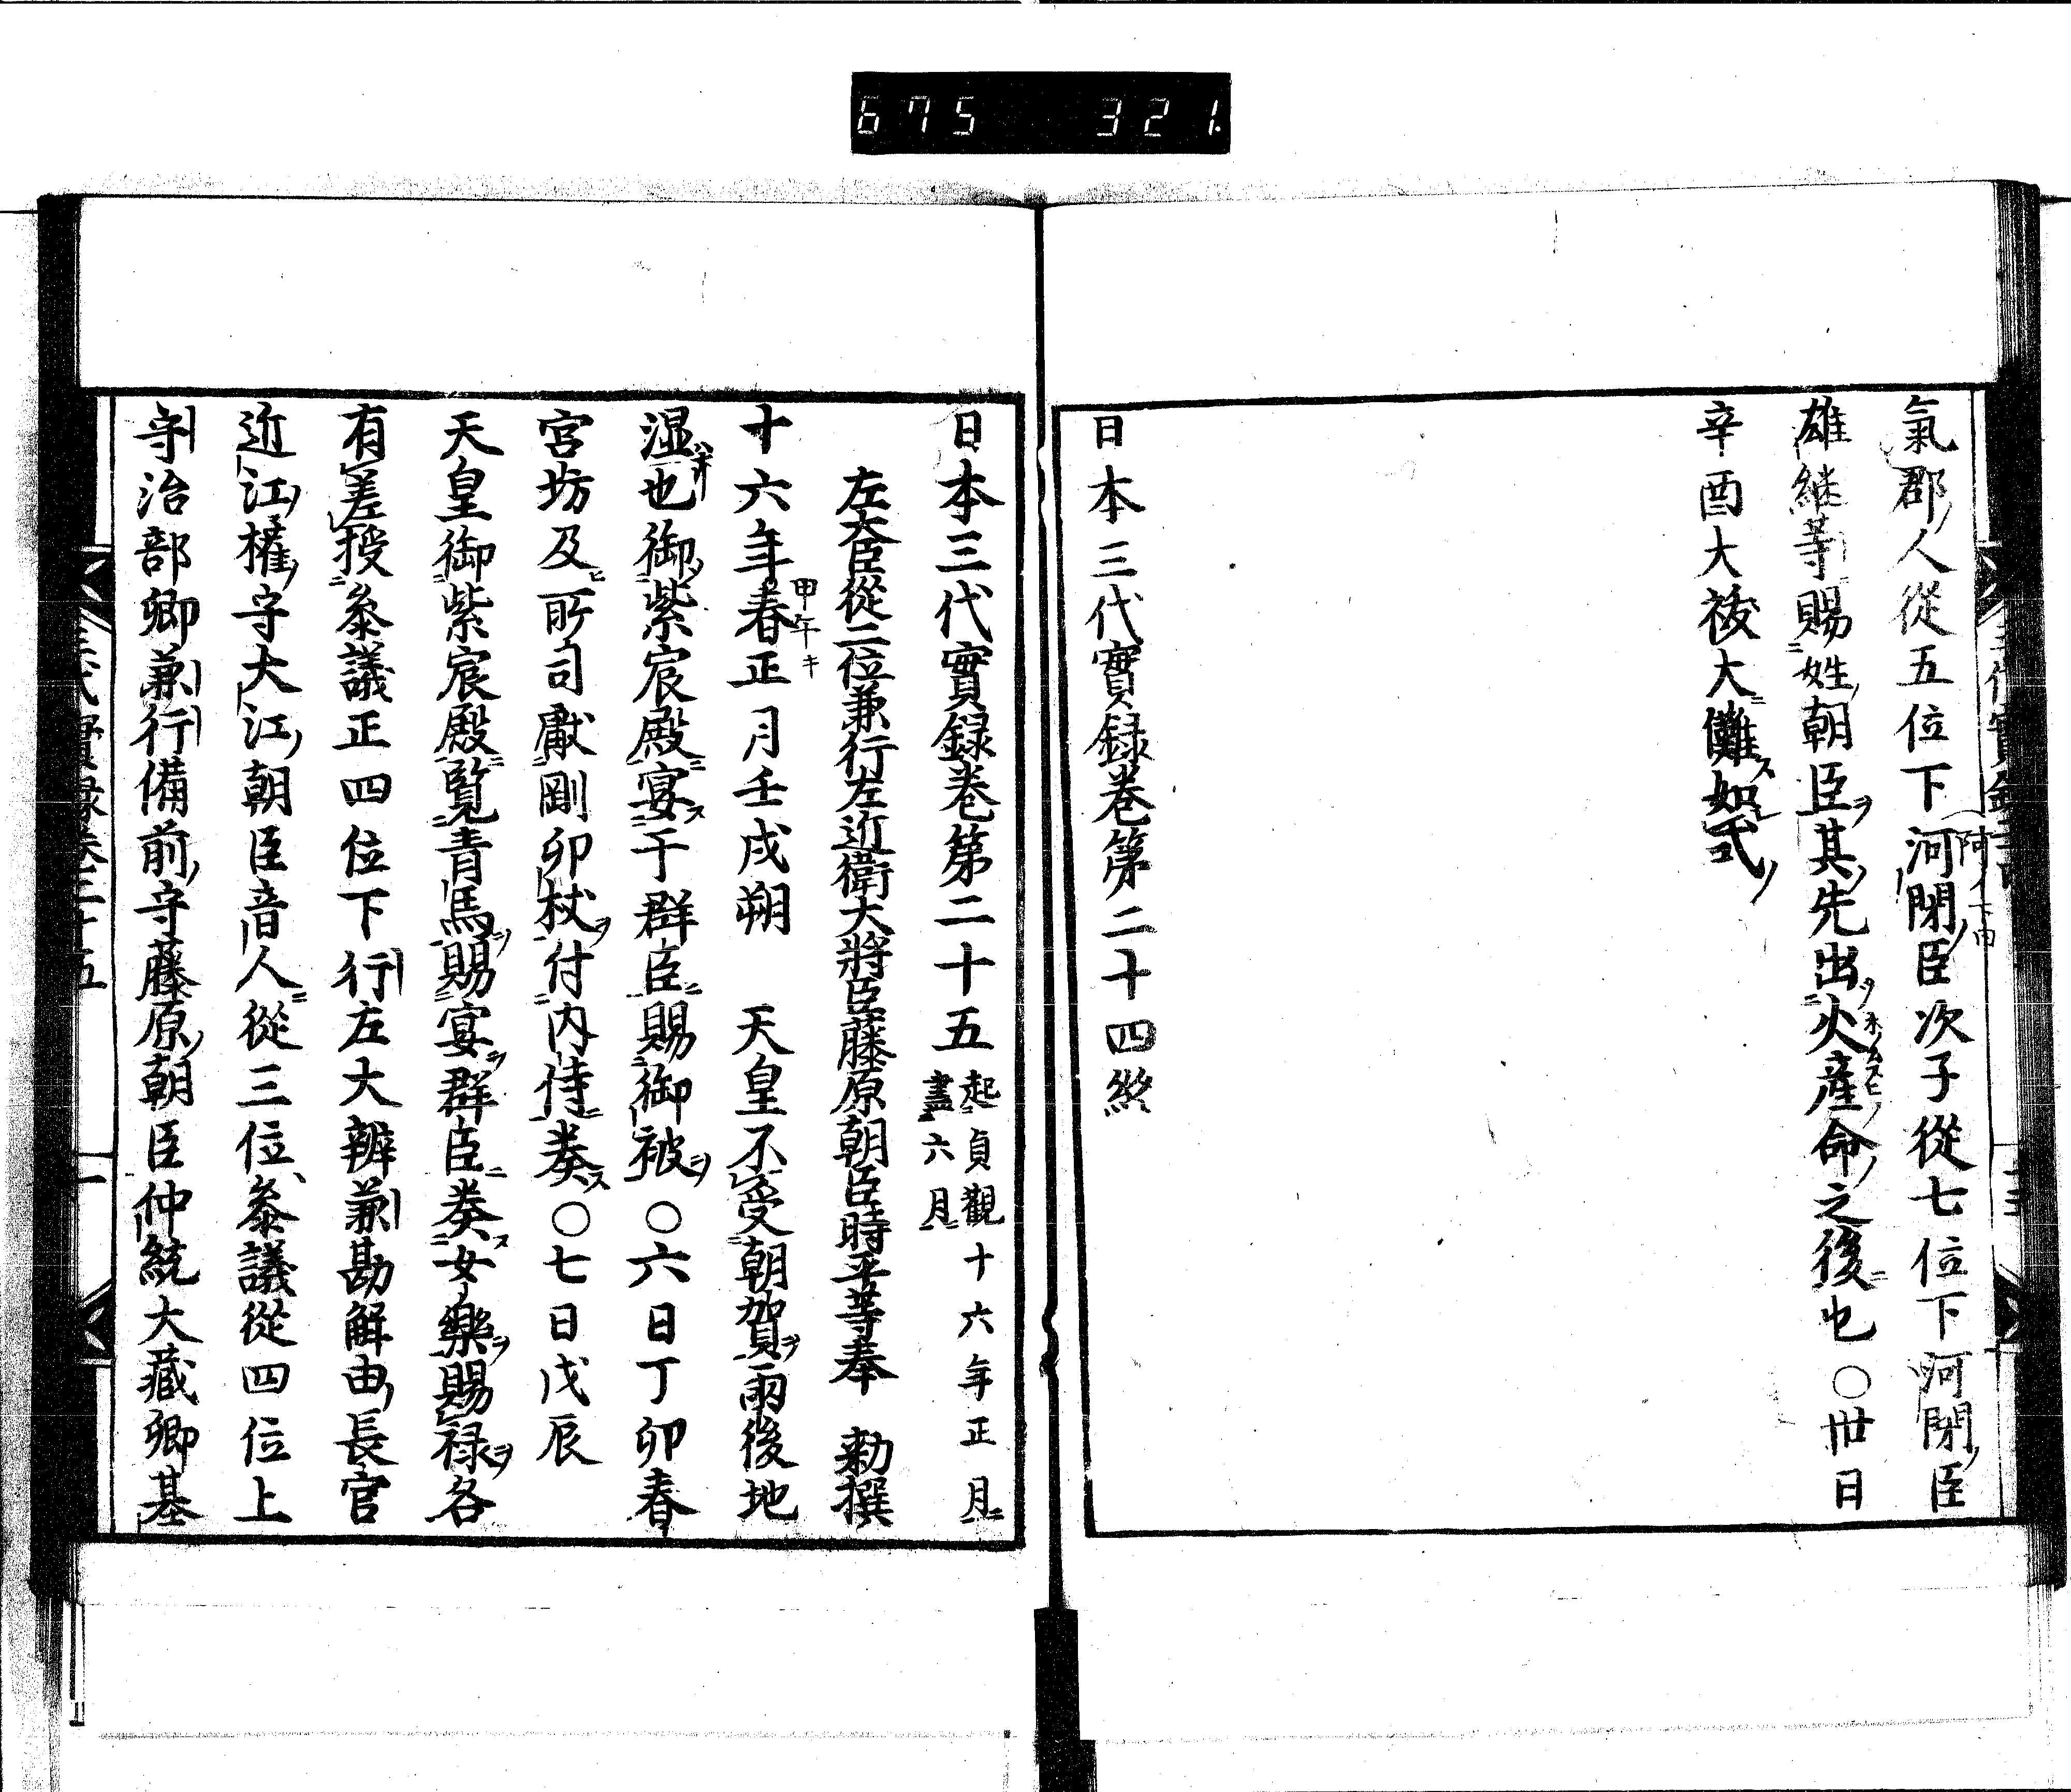 675 321.
氣郡人從五位下河閇臣次子從七位下河閇臣
雄継等賜姓朝臣其先出火産命之後也○丗日
辛酉大祓大儺如式
日本三代實録巻第二十四終
日本三代實録巻第二十五
起貞觀十六年正月
盡六月
左大臣從二位兼行左近衛大將臣藤原朝臣時平等奉 勅撰
十六年春正月壬戌朔 天皇不受朝賀雨後地
甲午
湿也御紫宸殿宴于群臣賜御被○六日丁卯春
宮坊及所司獻剛卯杖付内侍奏○七日戊辰
天皇御紫宸殿覧青馬賜宴群臣奏女樂賜禄各
有差授叅議正四位下行左大辨兼勘解由長官
近江權守大江朝臣音人從三位叅議從四位上
守治部卿兼行備前守藤原朝臣仲統大藏卿基